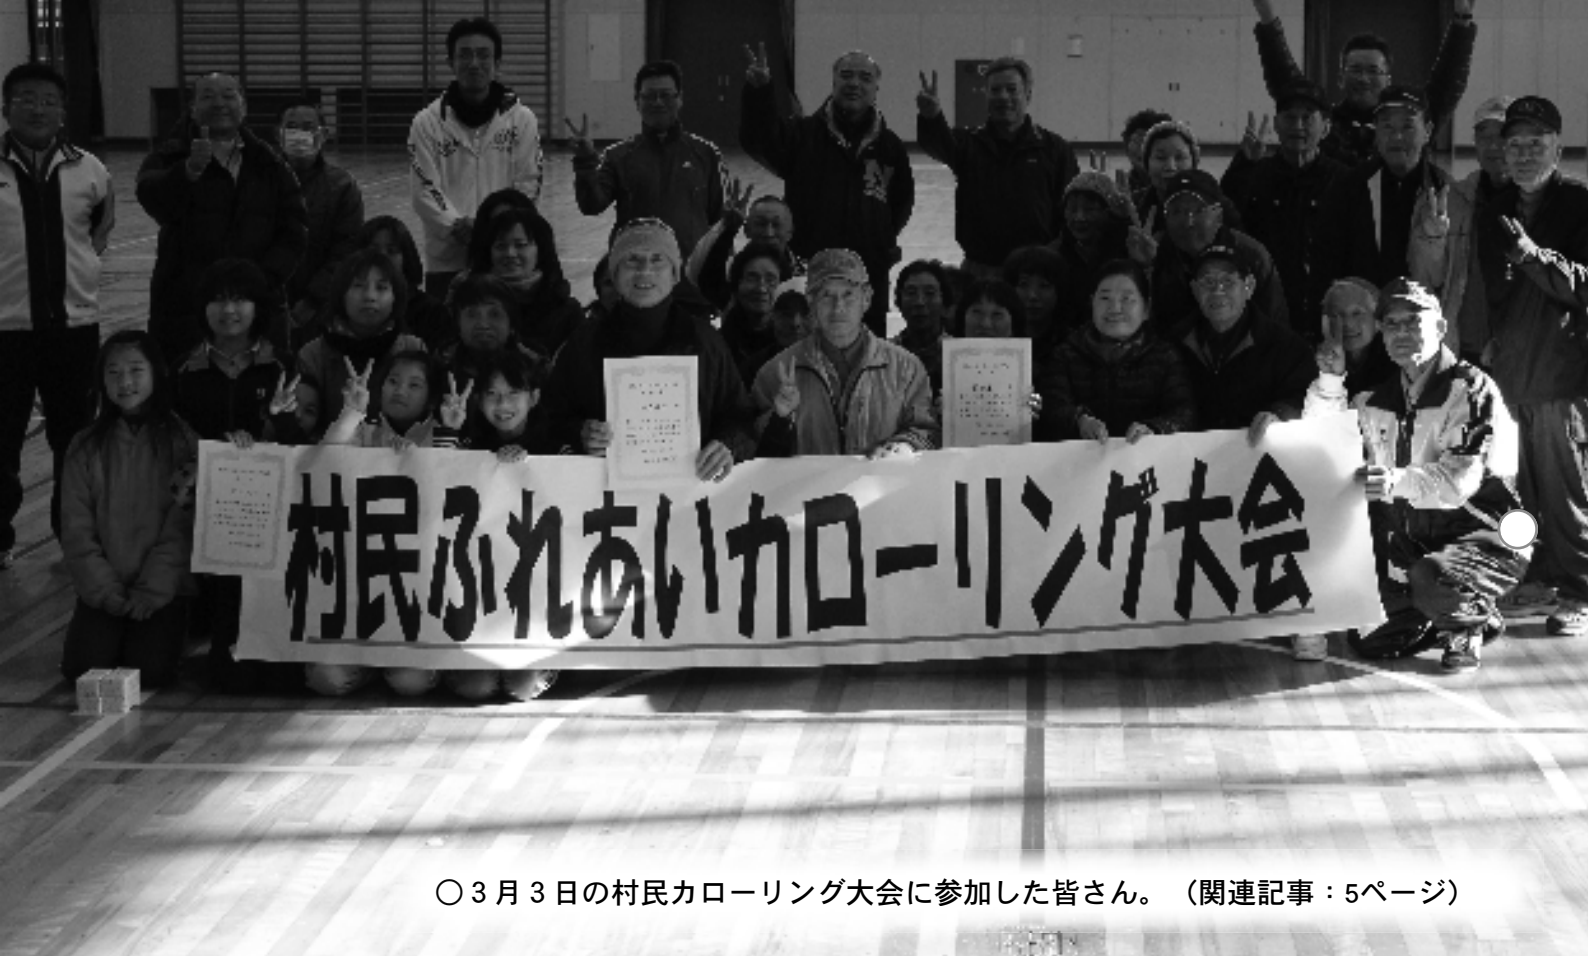 村民ふれあいカローリング大会
〇３月３日の村民カローリング大会に参加した皆さん。（関連記事：5ページ）